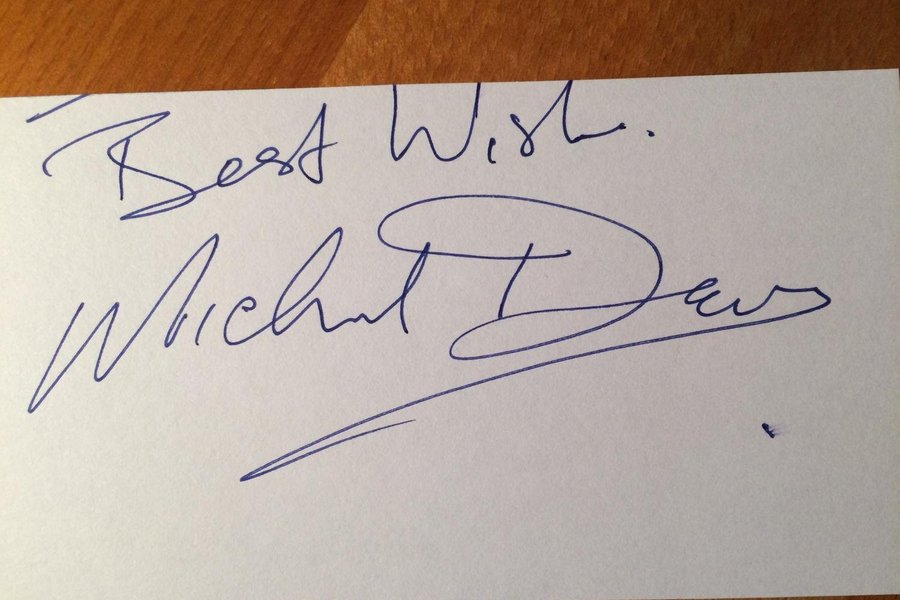 Best Wish.
Michael Davis